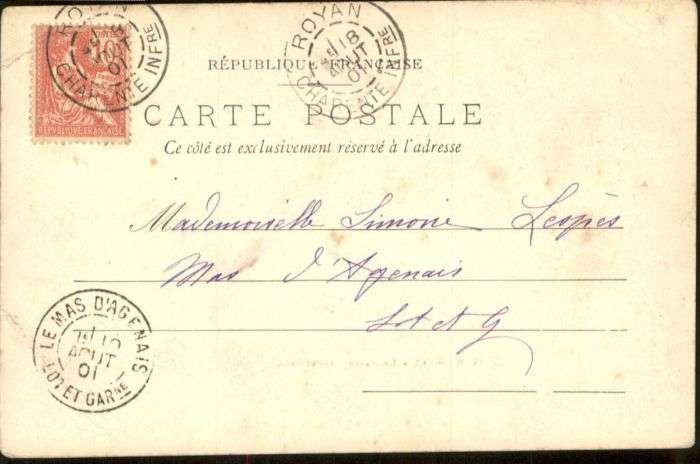 ROYAN
18
AOUT
01
CHARENTE INFRE
10
RÉPUBLIQUE FRANÇAISE
ROYAN
18
AOUT
01
CHARENTE INFRE
RÉPUBLIQUE FRANÇAISE
CARTE POSTALE
Ce côté est exclusivement réservé à l'adresse
Mademoiselle Simone Lespès
Mas d'Agenais
Lot et G
LE MAS D'AGENAIS
AOUT
01
LOT ET GARNE